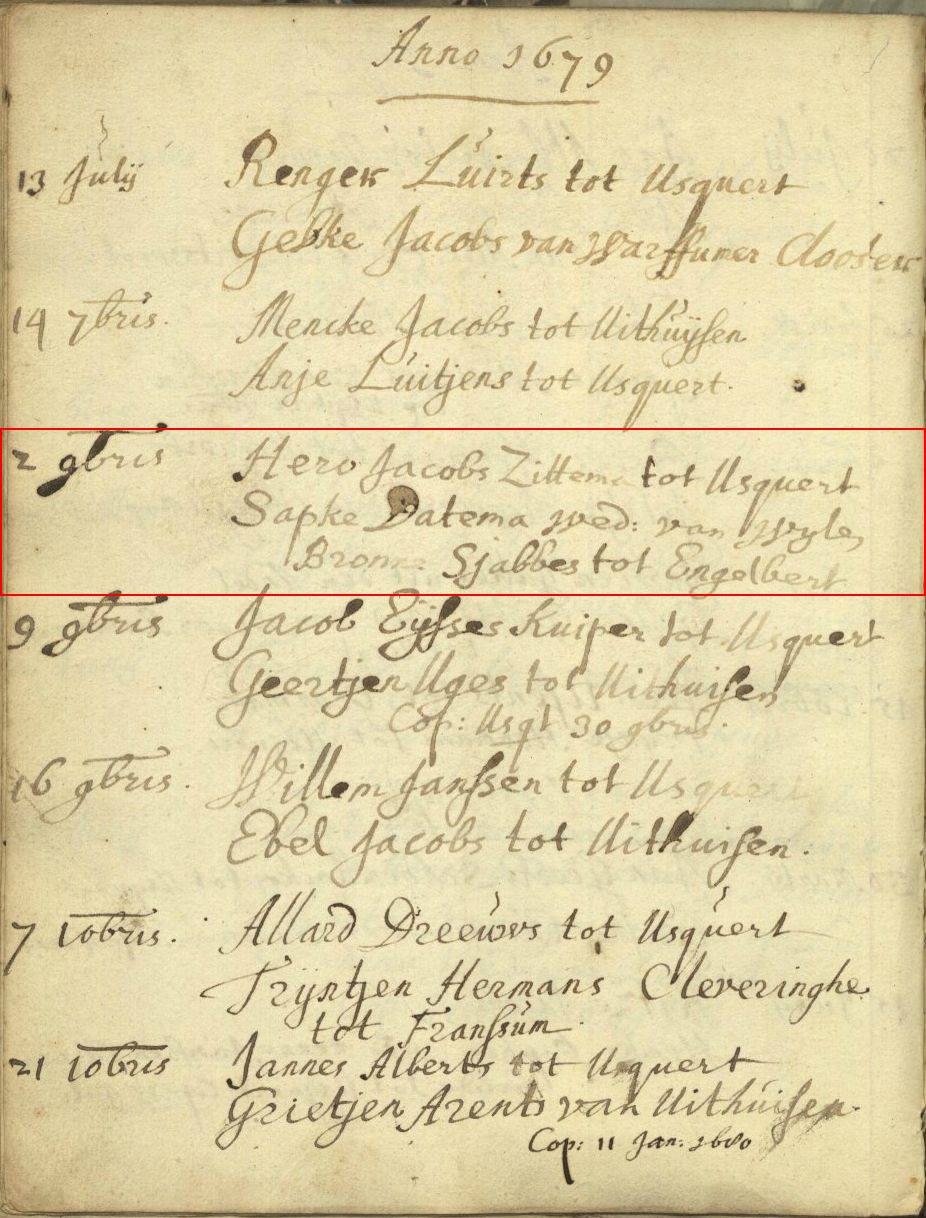 Anno 1679
13 Julÿ Renger Luirts tot Usquert
Gebke Jacobs van Warffumer Clooster
14 7bris. Mencke Jacobs tot Uithuÿsen
Anje Luitjens tot Usquert.
2 9bris Hero Jacobs Zittema tot Usquert
Sapke Datema wed: van Wylen
Bronne Sjabbes tot Engelbert
9 9bris Jacob Eÿsses Kuiper tot Usquert
Geertjen Uges tot Uithuisen
Cop: Usqt 30 9bris.
16 9bris. Willem Janssen tot Usquert
Ebel Jacobs tot Uithuisen.
7 10bris. Allard Dreewvs tot Usquert
Trÿntjen Hermans Cleveringhe
tot Franssum.
21 10bris Jannes Alberts tot Usquert
Grietjen Arents van Uithuisen.
Cop: 11 Jan: 1680